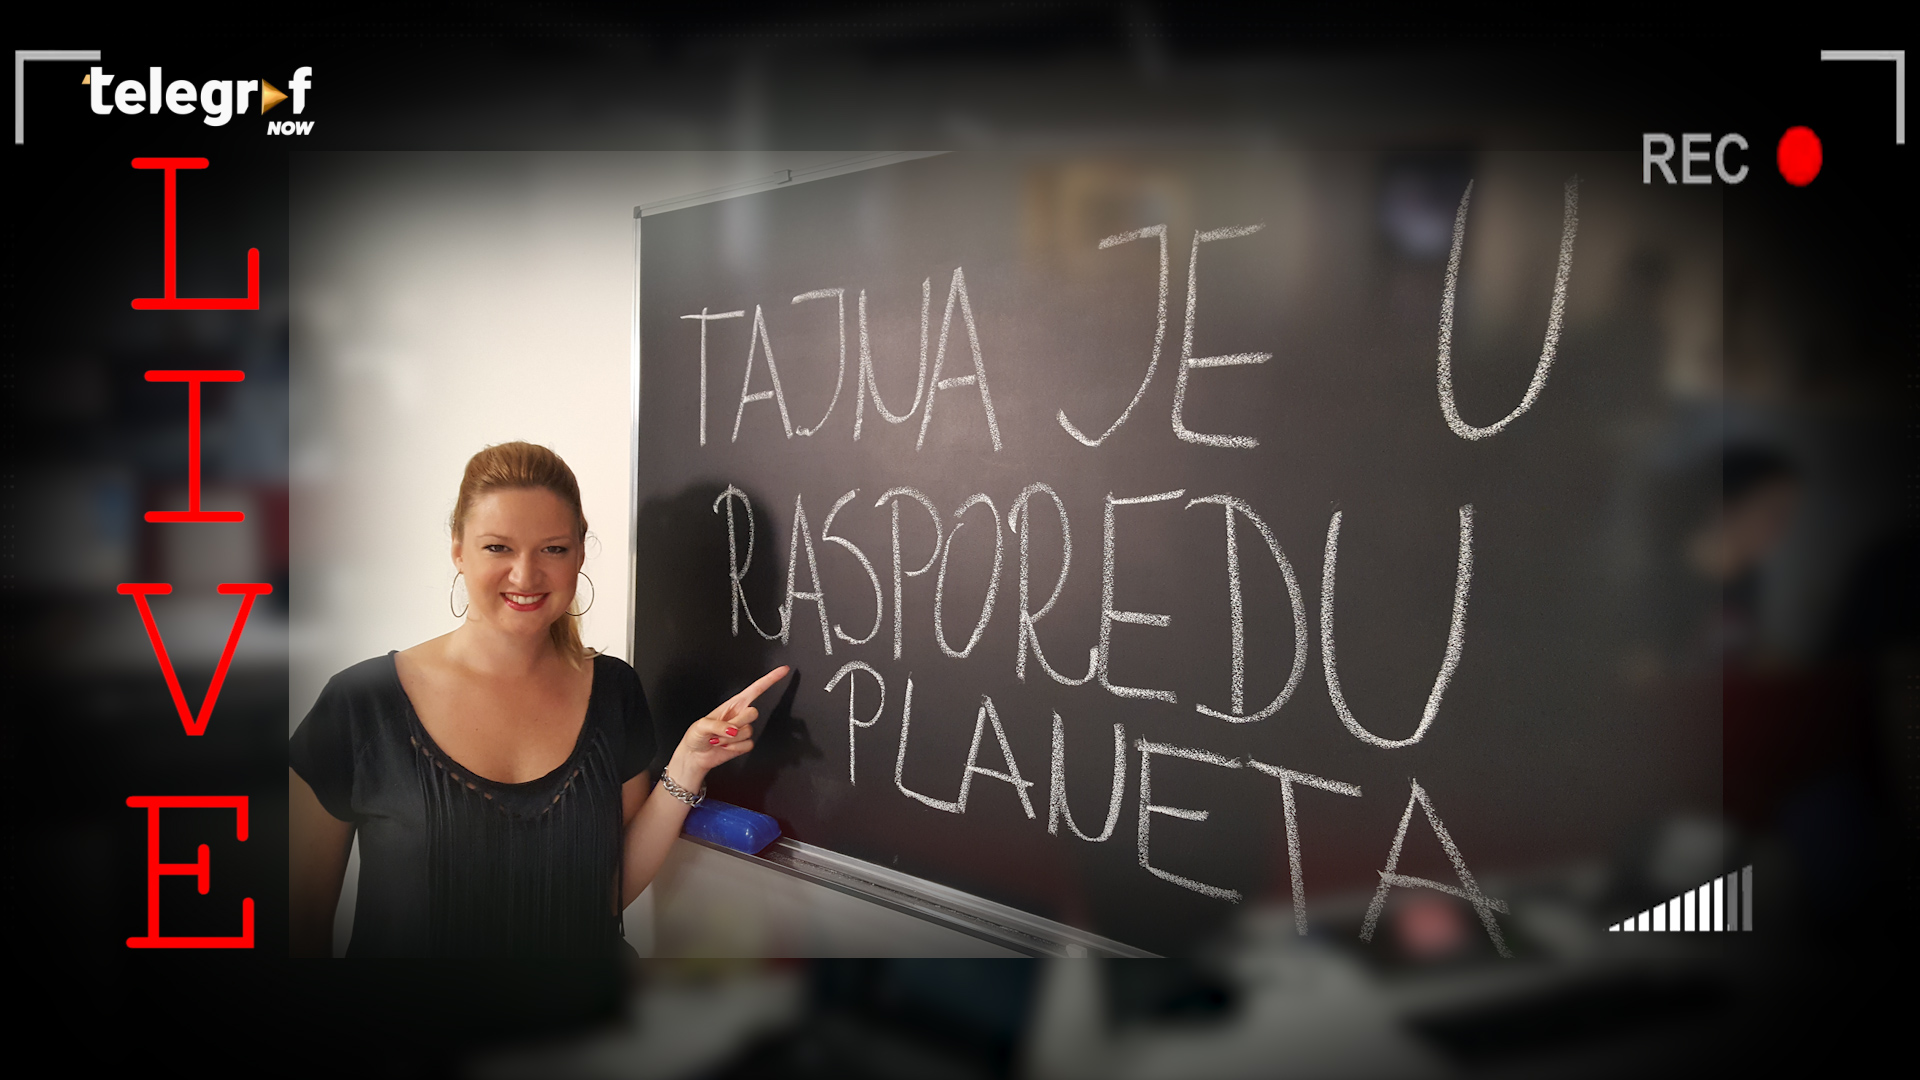 telegraf
NOW
REC
LIVE
TAJNA JE U
RASPOREDU
PLANETA